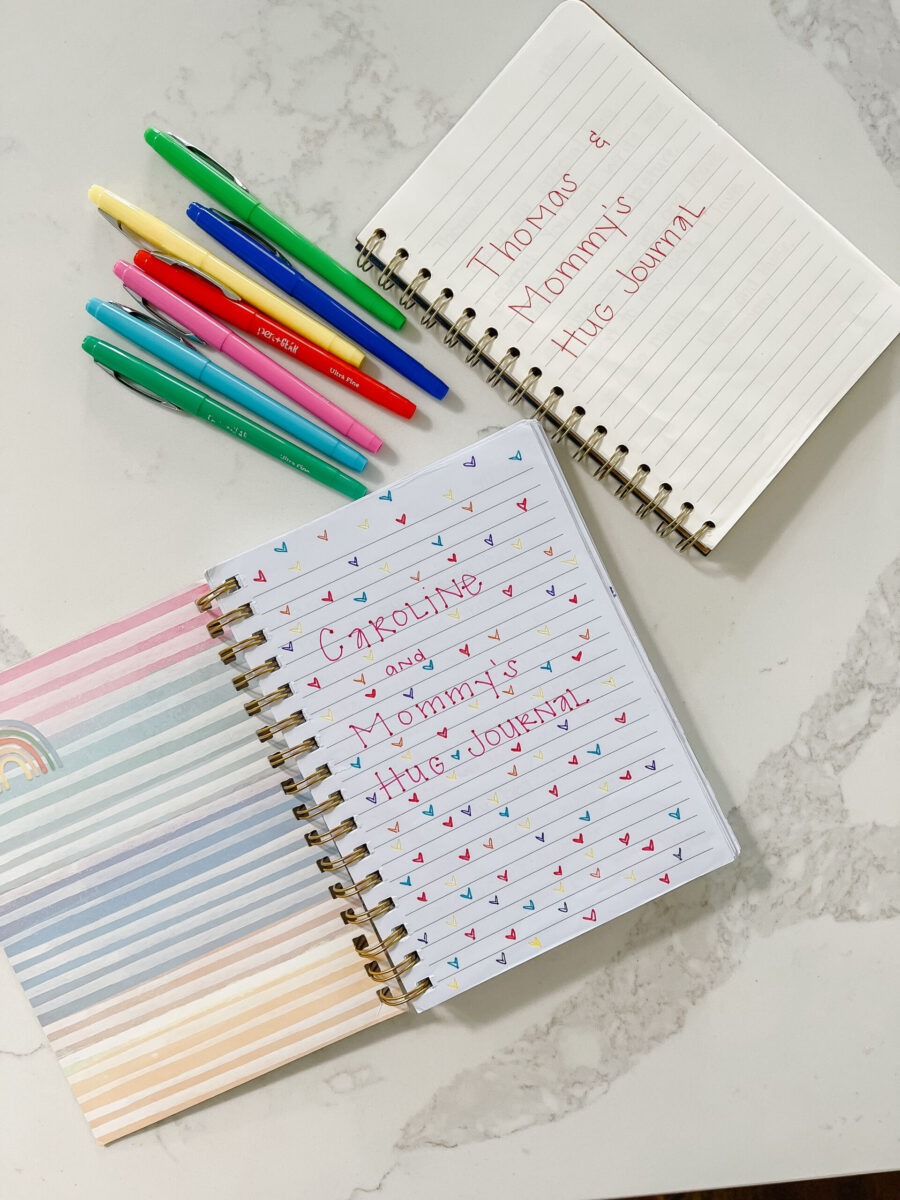 Thomas &
Mommy's
Hug Journal
pen+gear
Ultra Fine
Ultra Fine
CAROLINE
AND
Mommy's
HUG JOURNAL